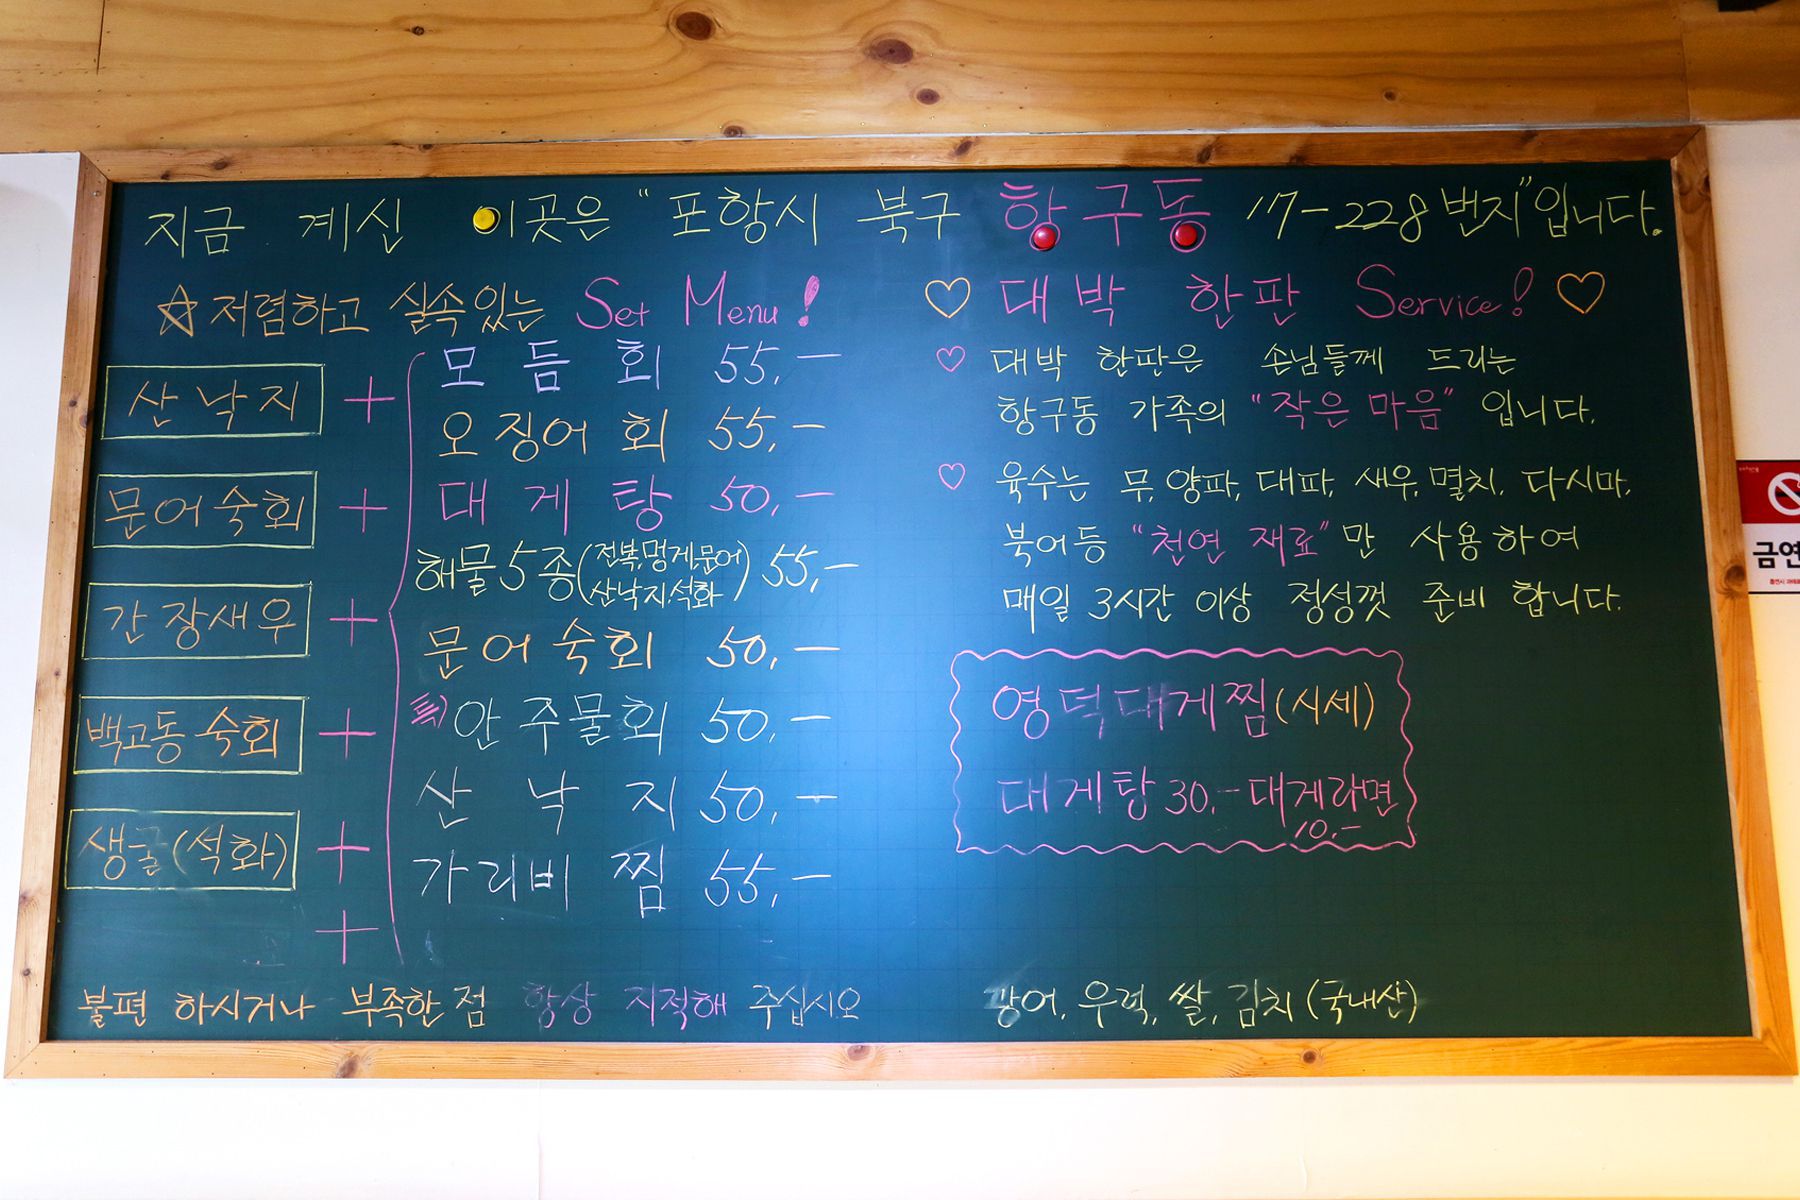 지금 계신 이곳은 "포항시 북구 항구동 17-228번지"입니다.
☆ 저렴하고 실속있는 Set Menu!
산낙지 +
문어숙회 +
간장새우 +
백고동 숙회 +
생굴(석화) +
+
모듬회 55,-
오징어회 55,-
대게탕 50,-
해물5종(전복,멍게,문어 산낙지,석화) 55,-
문어숙회 50,-
특) 안주물회 50,-
산낙지 50,-
가리비찜 55,-
불편 하시거나 부족한 점 항상 지적해 주십시오
♡ 대박 한판 Service! ♡
♡ 대박 한판은 손님들께 드리는
항구동 가족의 "작은 마음" 입니다.
♡ 육수는 무, 양파, 대파, 새우, 멸치, 다시마,
북어등 "천연 재료"만 사용하여
매일 3시간 이상 정성껏 준비 합니다.
영덕대게찜(시세)
대게탕 30,- 대게라면
10,-
광어, 우럭, 쌀, 김치 (국내산)
금연